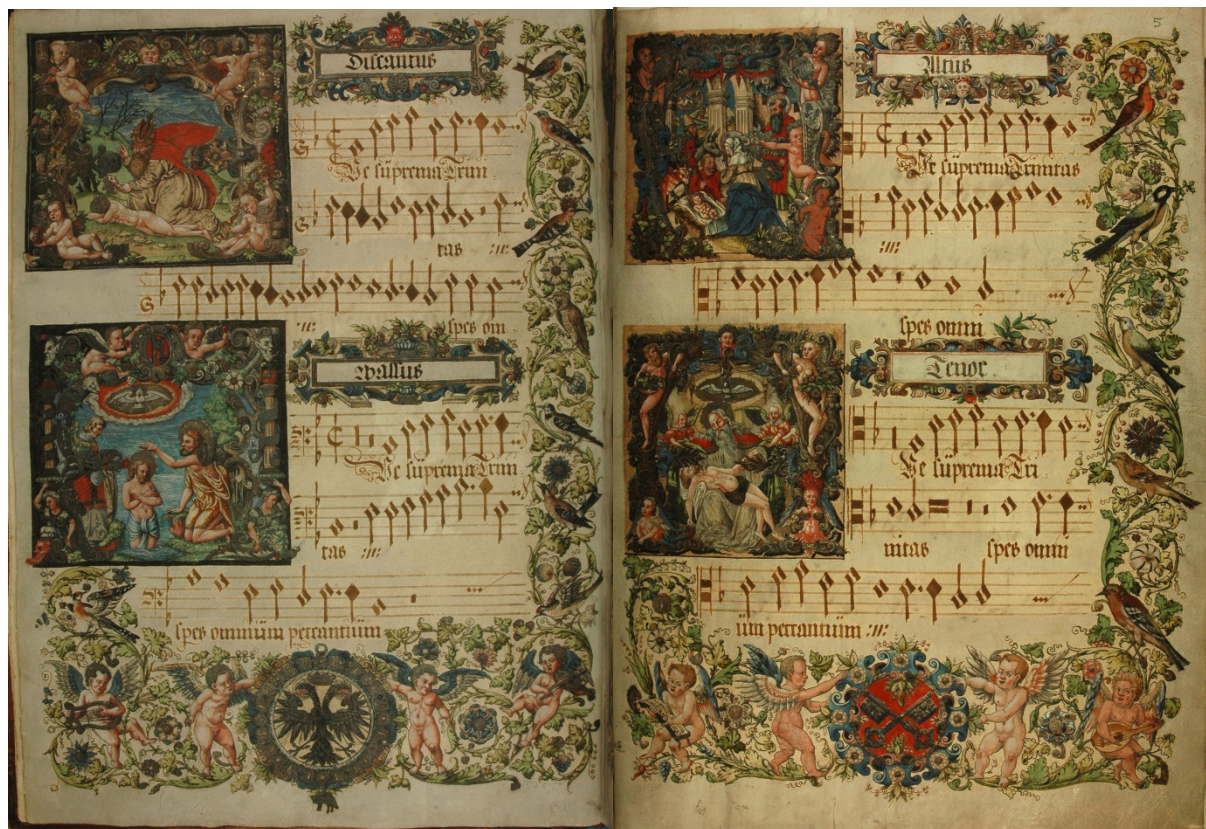 Discantus
Ve suprema Trini
tas :///:
:///: spes om
Vassus
Ve suprema Trini
tas :///:
spes omnium peccantium
5
Altus
Ve suprema Trinitas
:///:
spes omni
Tenor
Ve suprema Tri
nitas spes omni
um peccantium :///: